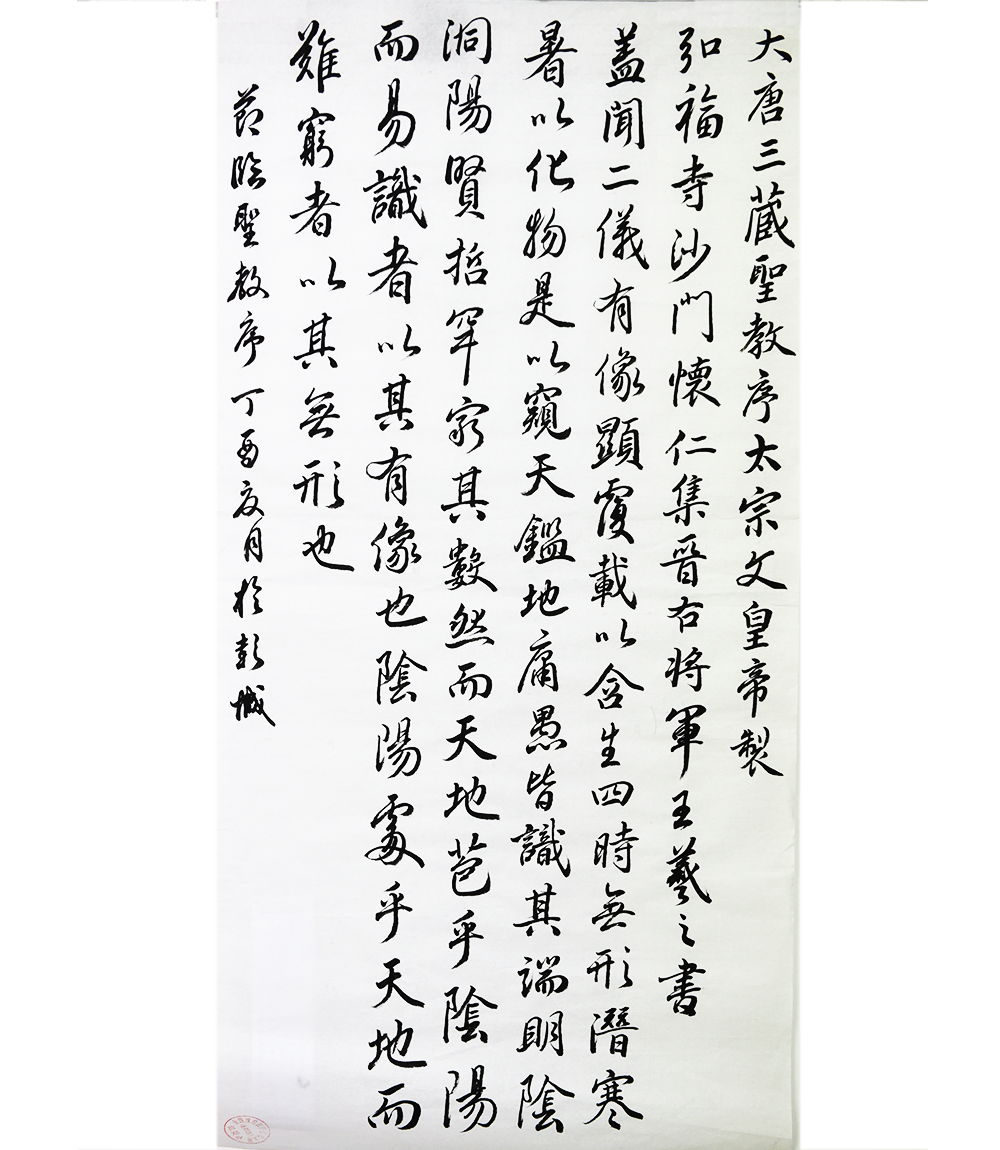 大唐三藏聖教序太宗文皇帝製
弘福寺沙門懷仁集晉右將軍王羲之書
蓋聞二儀有像顯覆載以含生四時無形潛寒
暑以化物是以窺天鑑地庸愚皆識其端明陰
洞陽賢哲罕窮其數然而天地苞乎陰陽
而易識者以其有像也陰陽處乎天地而
難窮者以其無形也
節臨聖教序丁酉夏月於彭城